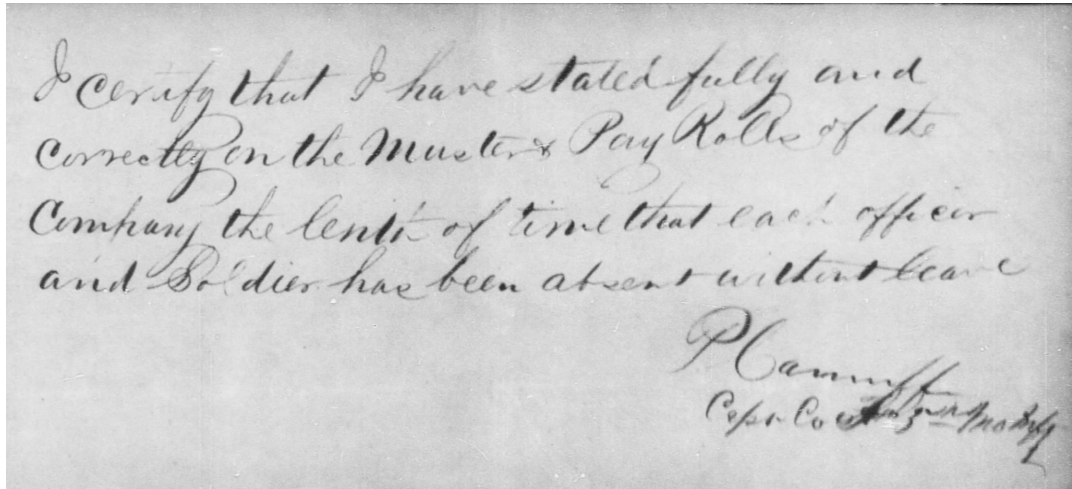 I certify that I have stated fully and
correctly on the Muster & Pay Rolls of the
Company the lenth of time that each officer
and Soldier has been absent without leave
P Canniff
Capt Co Mo Infy